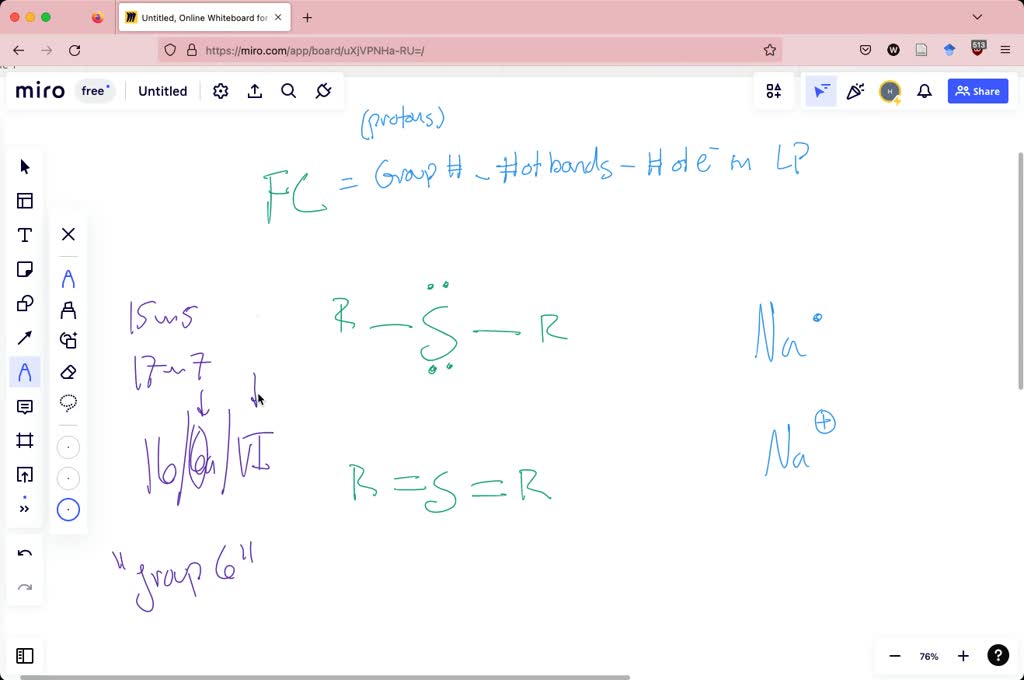 Untitled, Online Whiteboard for
https://miro.com/app/board/uXjVPNHa-RU=/
513
miro free Untitled
H
Share
(protons)
FC = Group # - # of bonds - # of e- in LP
15 5
R — S — R
Na
17 7
16/6a/VI
R = S = R
Na +
"group 6"
76%